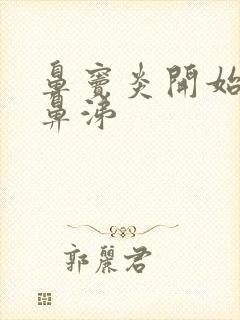 鼻窦炎開始
鼻涕
郭麗君